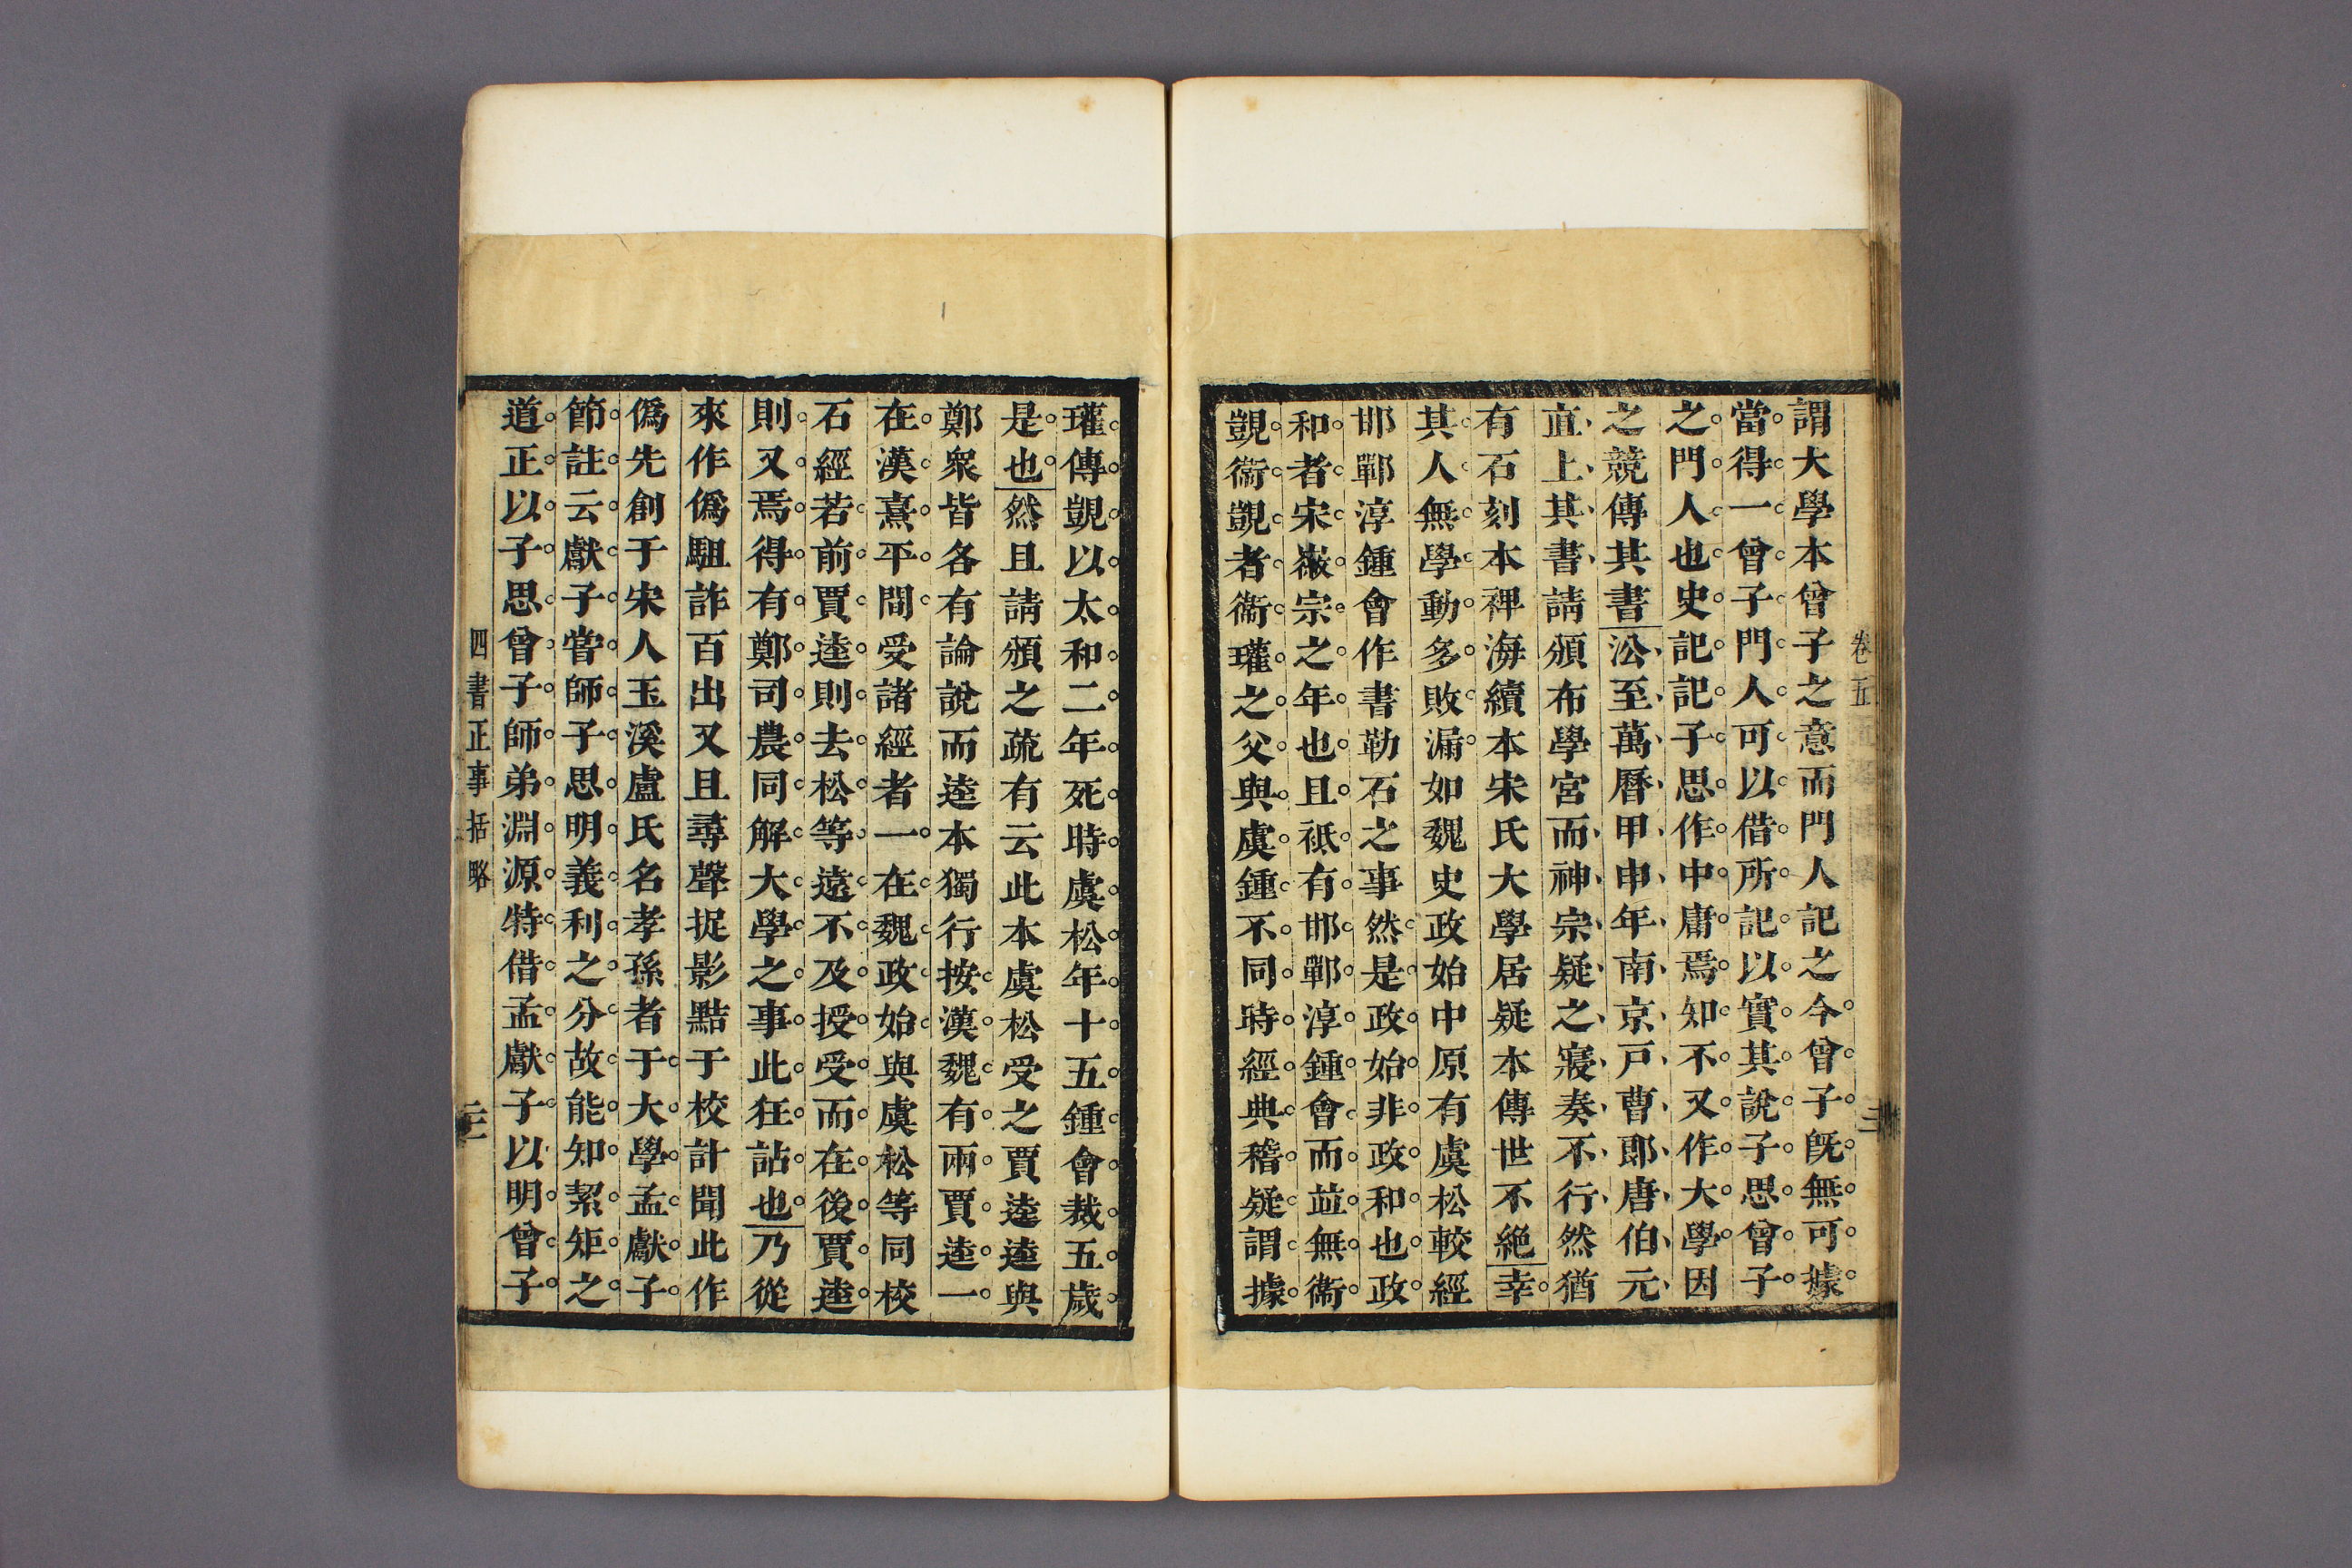 卷五
三
謂大學本曾子之意而門人記之今曾子旣無可據
當得一曾子門人可以借所記以實其說子思曾子
之門人也史記記子思作中庸焉知不又作大學因
之競傳其書㳂至萬曆甲申年南京戸曹郎唐伯元
直上其書請頒布學宮而神宗疑之寢奏不行然猶
有石刻本禆海續本宋氏大學居疑本傳世不絕幸
其人無學動多敗漏如魏史政始中原有虞松較經
邯鄲淳鍾會作書勒石之事然是政始非政和也政
和者宋徽宗之年也且祗有邯鄲淳鍾會而並無衞
覬衞覬者衞瓘之父與虞鍾不同時經典稽疑謂據
瓘傳覬以太和二年死時虞松年十五鍾會裁五歲
是也然且請頒之疏有云此本虞松受之賈逵逵與
鄭衆皆各有論說而逵本獨行按漢魏有兩賈逵一
在漢熹平間受諸經者一在魏政始與虞松等同校
石經若前賈逵則去松等遠不及授受而在後賈逵
則又焉得有鄭司農同解大學之事此狂詀也乃從
來作僞駔詐百出又且尋聲捉影黠于校計聞此作
僞先創于宋人玉溪盧氏名孝孫者于大學孟獻子
節註云獻子嘗師子思明義利之分故能知絜矩之
道正以子思曾子師弟淵源特借孟獻子以明曾子
四書正事括略
三